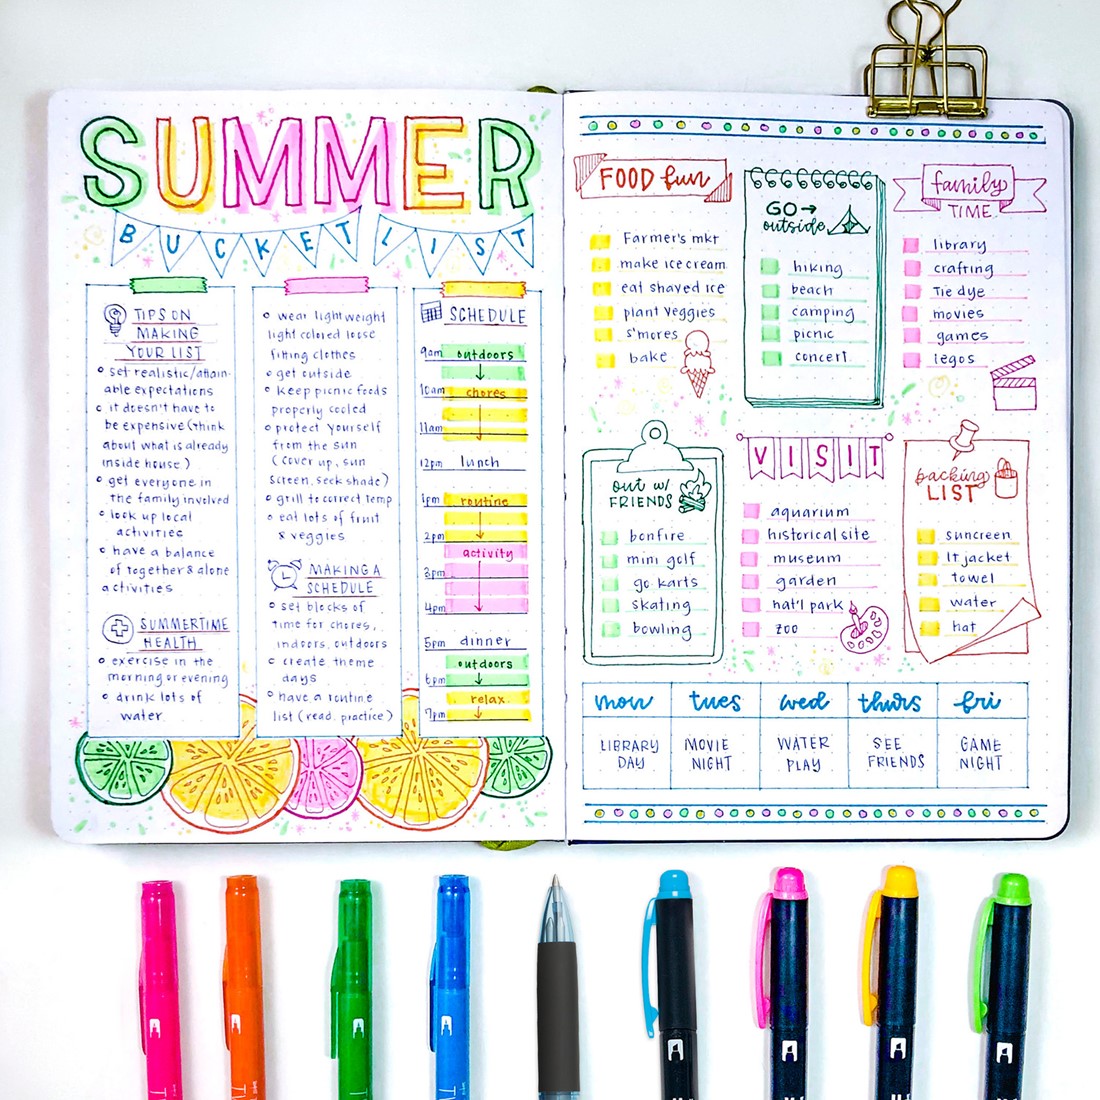 SUMMER
BUCKET LIST
TIPS ON
MAKING
YOUR LIST
set realistic/attain-
able expectations
it doesn't have to
be expensive (think
about what is already
inside house)
get everyone in
the family involved
look up local
activities
have a balance
of together & alone
activities
SUMMERTIME
HEALTH
exercise in the
morning or evening
drink lots of
water
wear light weight
light colored loose
fitting clothes
get outside
keep picnic foods
properly cooled
protect yourself
from the sun
(cover up, sun
screen, seek shade)
grill to correct temp
eat lots of fruit
& veggies
MAKING A
SCHEDULE
set blocks of
time for chores,
indoors, outdoors
create theme
days
have a routine
list (read, practice)
SCHEDULE
9am outdoors
10am chores
11am
12pm lunch
1pm routine
2pm
activity
3pm
4pm
5pm dinner
outdoors
6pm
relax
7pm
FOOD fun
Farmer's mkt
make ice cream
eat shaved ice
plant veggies
s'mores
bake
GO→
outside
hiking
beach
camping
picnic
concert
family
TIME
library
crafting
Tie dye
movies
games
legos
out w/
FRIENDS
bonfire
mini golf
go karts
skating
bowling
VISIT
aquarium
historical site
museum
garden
nat'l park
zoo
packing
LIST
suncreen
lt jacket
towel
water
hat
mon tues wed thurs fri
LIBRARY MOVIE WATER SEE GAME
DAY NIGHT PLAY FRIENDS NIGHT